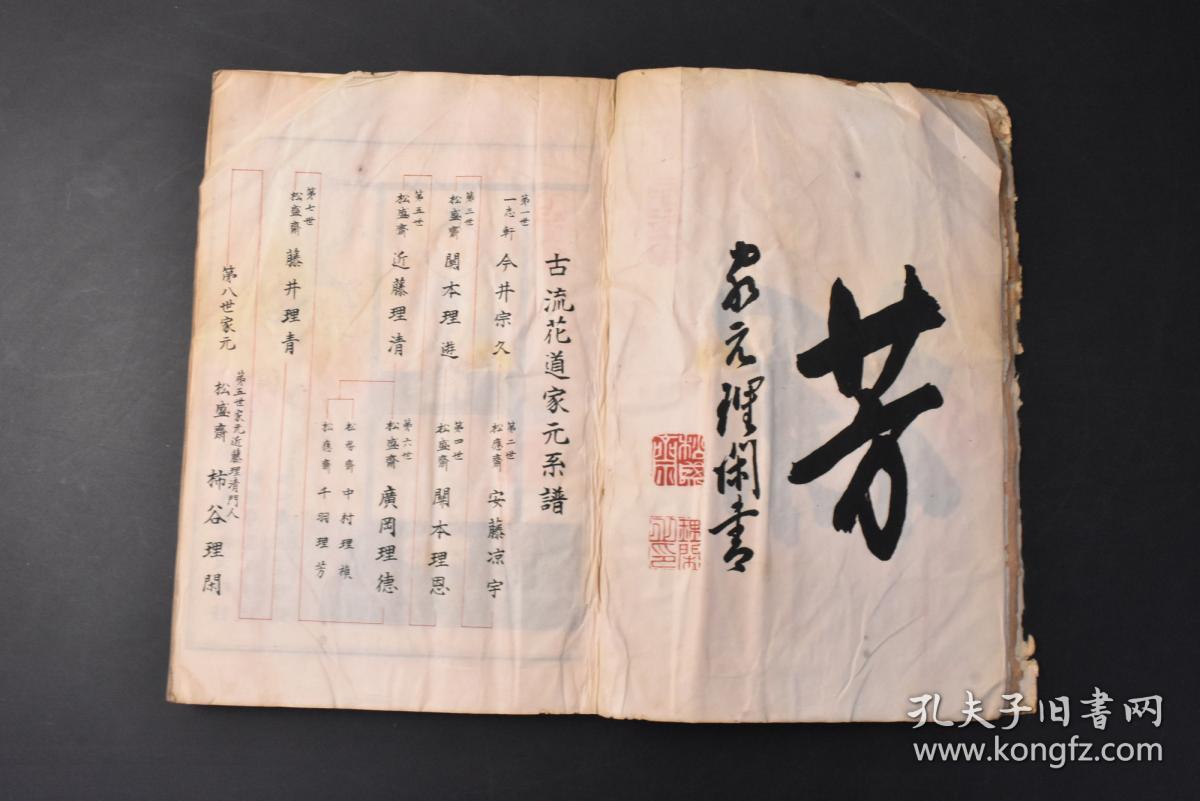 芳
家元理閑書
古流花道家元系譜
第一世
一志軒 今井宗久
第二世
松應齋 安藤凉宇
第三世
松盛齋 関本理遊
第四世
松盛齋 関本理恩
第五世
松盛齋 近藤理清
第六世
松盛齋 廣岡理德
松應齋 千羽理芳
第七世
松盛齋 藤井理青
第八世家元
第五世家元近藤理清門人
松盛齋 柿谷理閑
孔夫子旧書网
www.kongfz.com